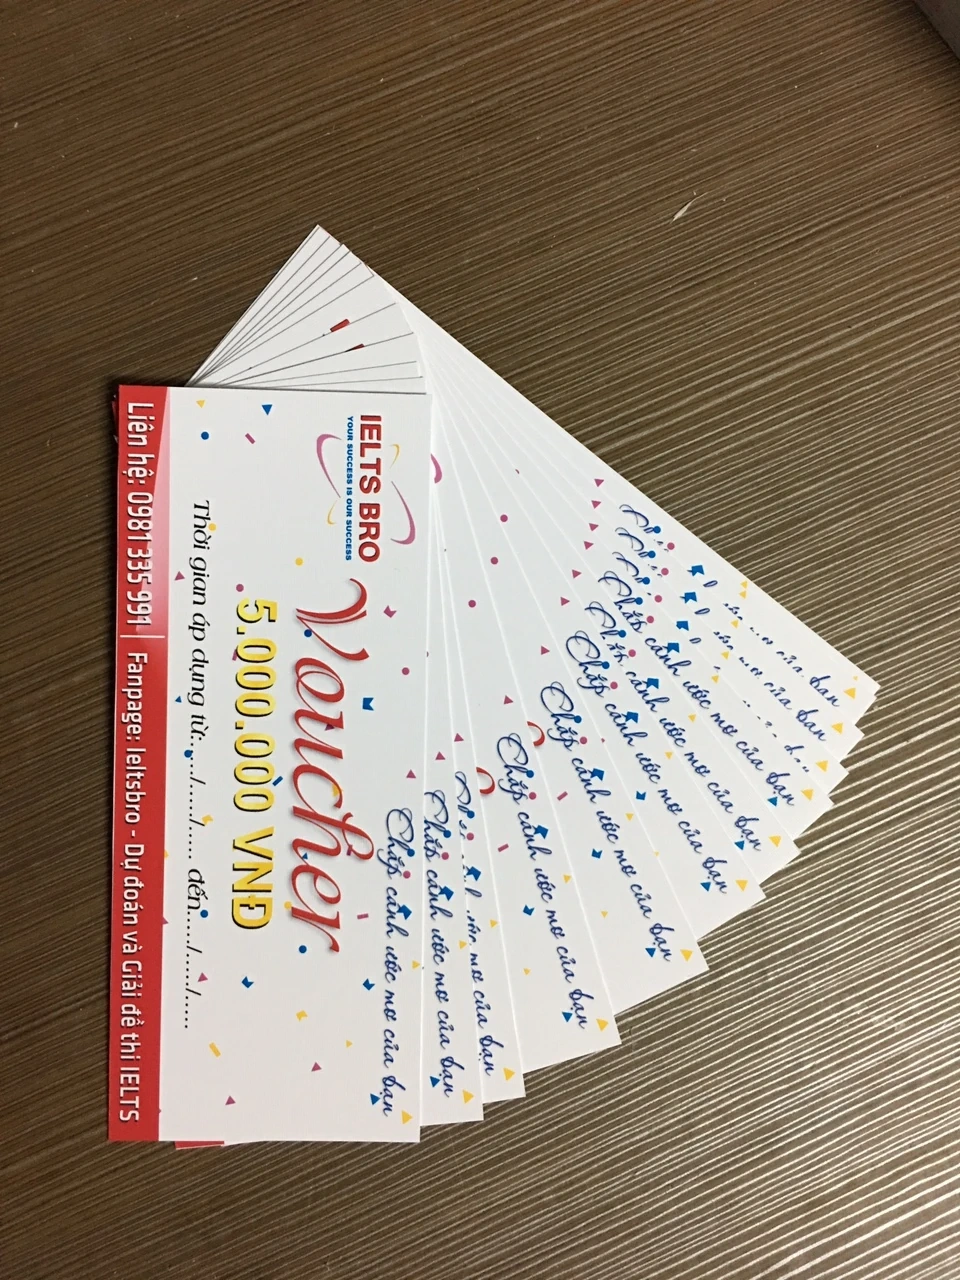 IELTS BRO
YOUR SUCCESS IS OUR SUCCESS
Chắp cánh ước mơ của bạn
Voucher
5.000.000 VNĐ
Thời gian áp dụng từ:..../....../...... đến....../....../......
Liên hệ: 0981 335 991 | Fanpage: Ieltsbro - Dự đoán và Giải đề thi IELTS
Chắp cánh ước mơ của bạn
ước mơ của bạn
Chắp cánh ước mơ của bạn
Chắp cánh ước mơ của bạn
Chắp cánh ước mơ của bạn
Chắp cánh ước mơ của bạn
Chắp cánh ước mơ của bạn
của bạn
của bạn